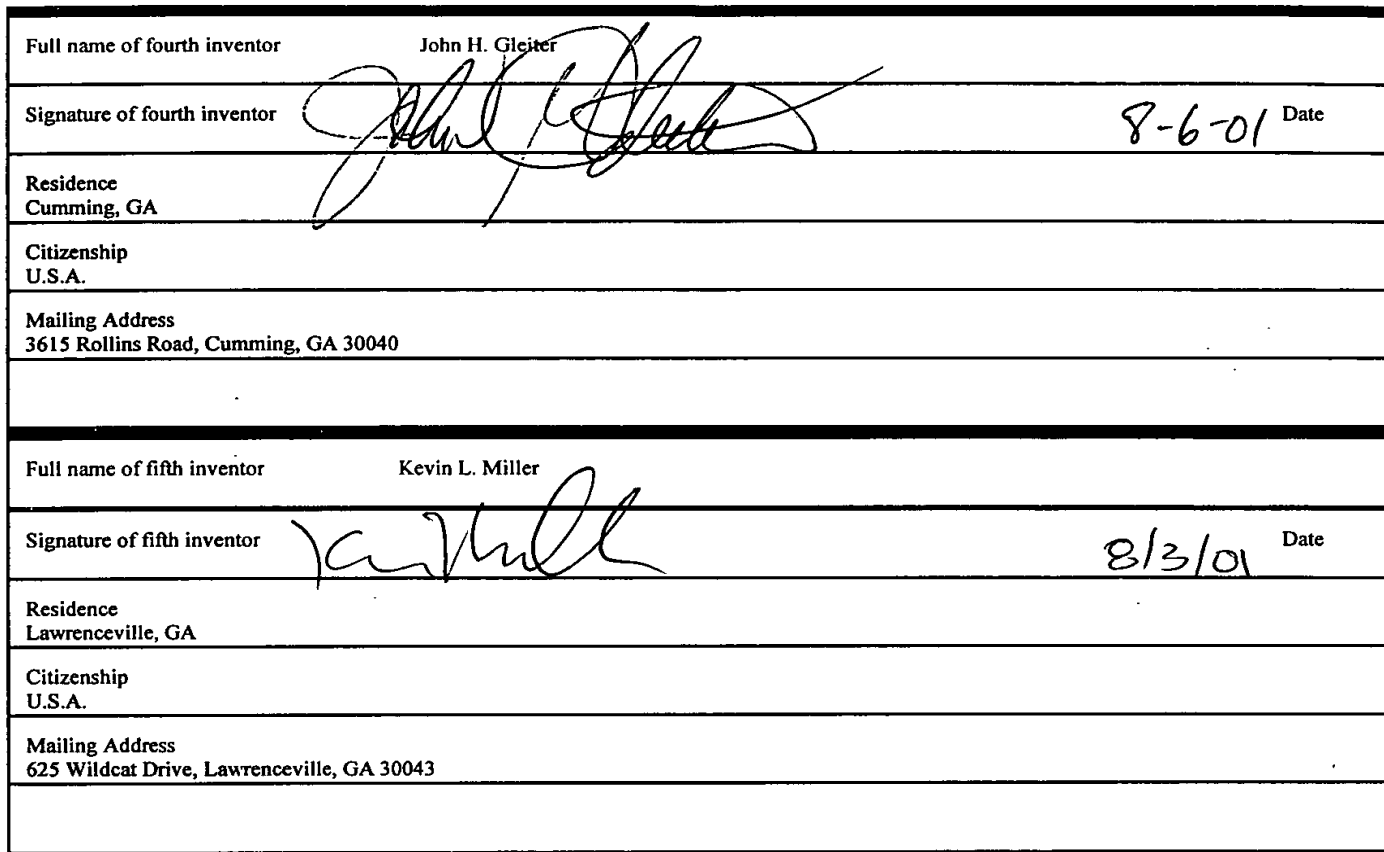 Full name of fourth inventor John H. Gleiter
Signature of fourth inventor 8-6-01 Date
Residence
Cumming, GA
Citizenship
U.S.A.
Mailing Address
3615 Rollins Road, Cumming, GA 30040
Full name of fifth inventor Kevin L. Miller
Signature of fifth inventor 8/3/01 Date
Residence
Lawrenceville, GA
Citizenship
U.S.A.
Mailing Address
625 Wildcat Drive, Lawrenceville, GA 30043